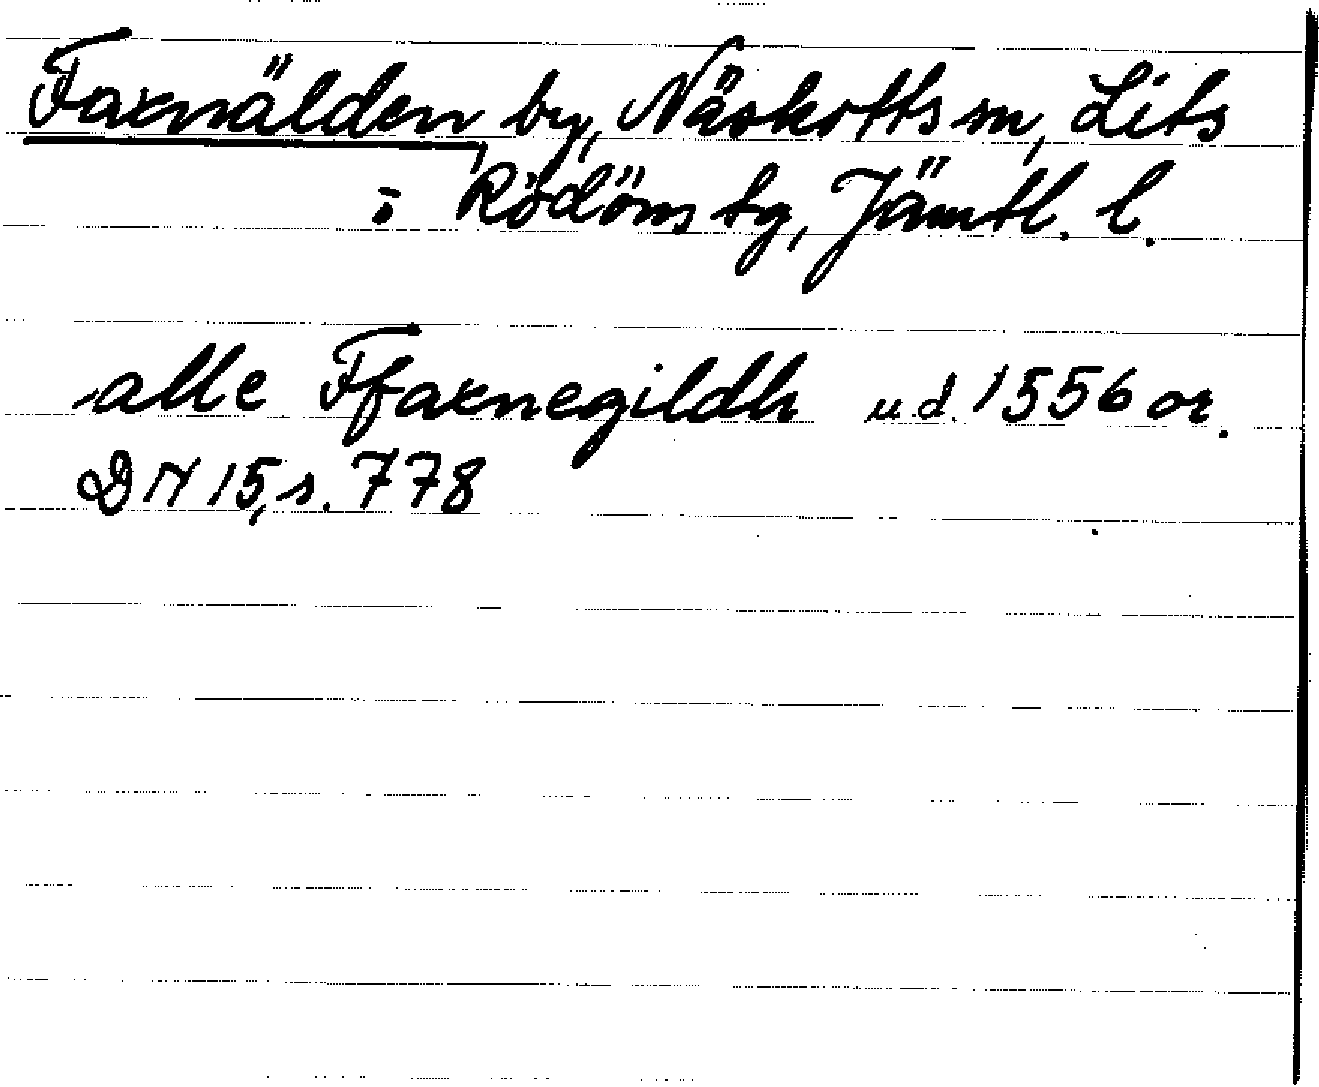 Faxnälden by, Näskotts sn, Lits
o Rödöns tg, Jämtl. l.
alle Ffaxnegildh u.d. 1556 or.
DN 15, s. 778